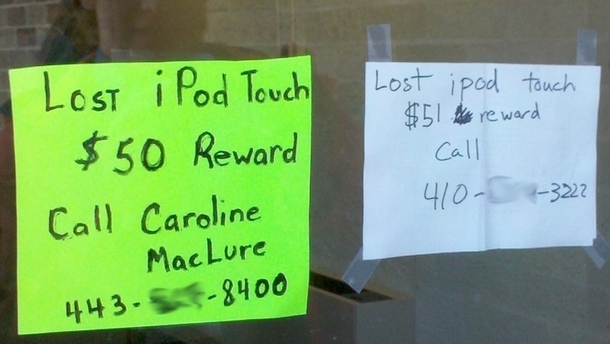 Lost iPod Touch
$50 Reward
Call Caroline
MacLure
443- -8400
Lost ipod touch
$51 reward
Call
410- -3222